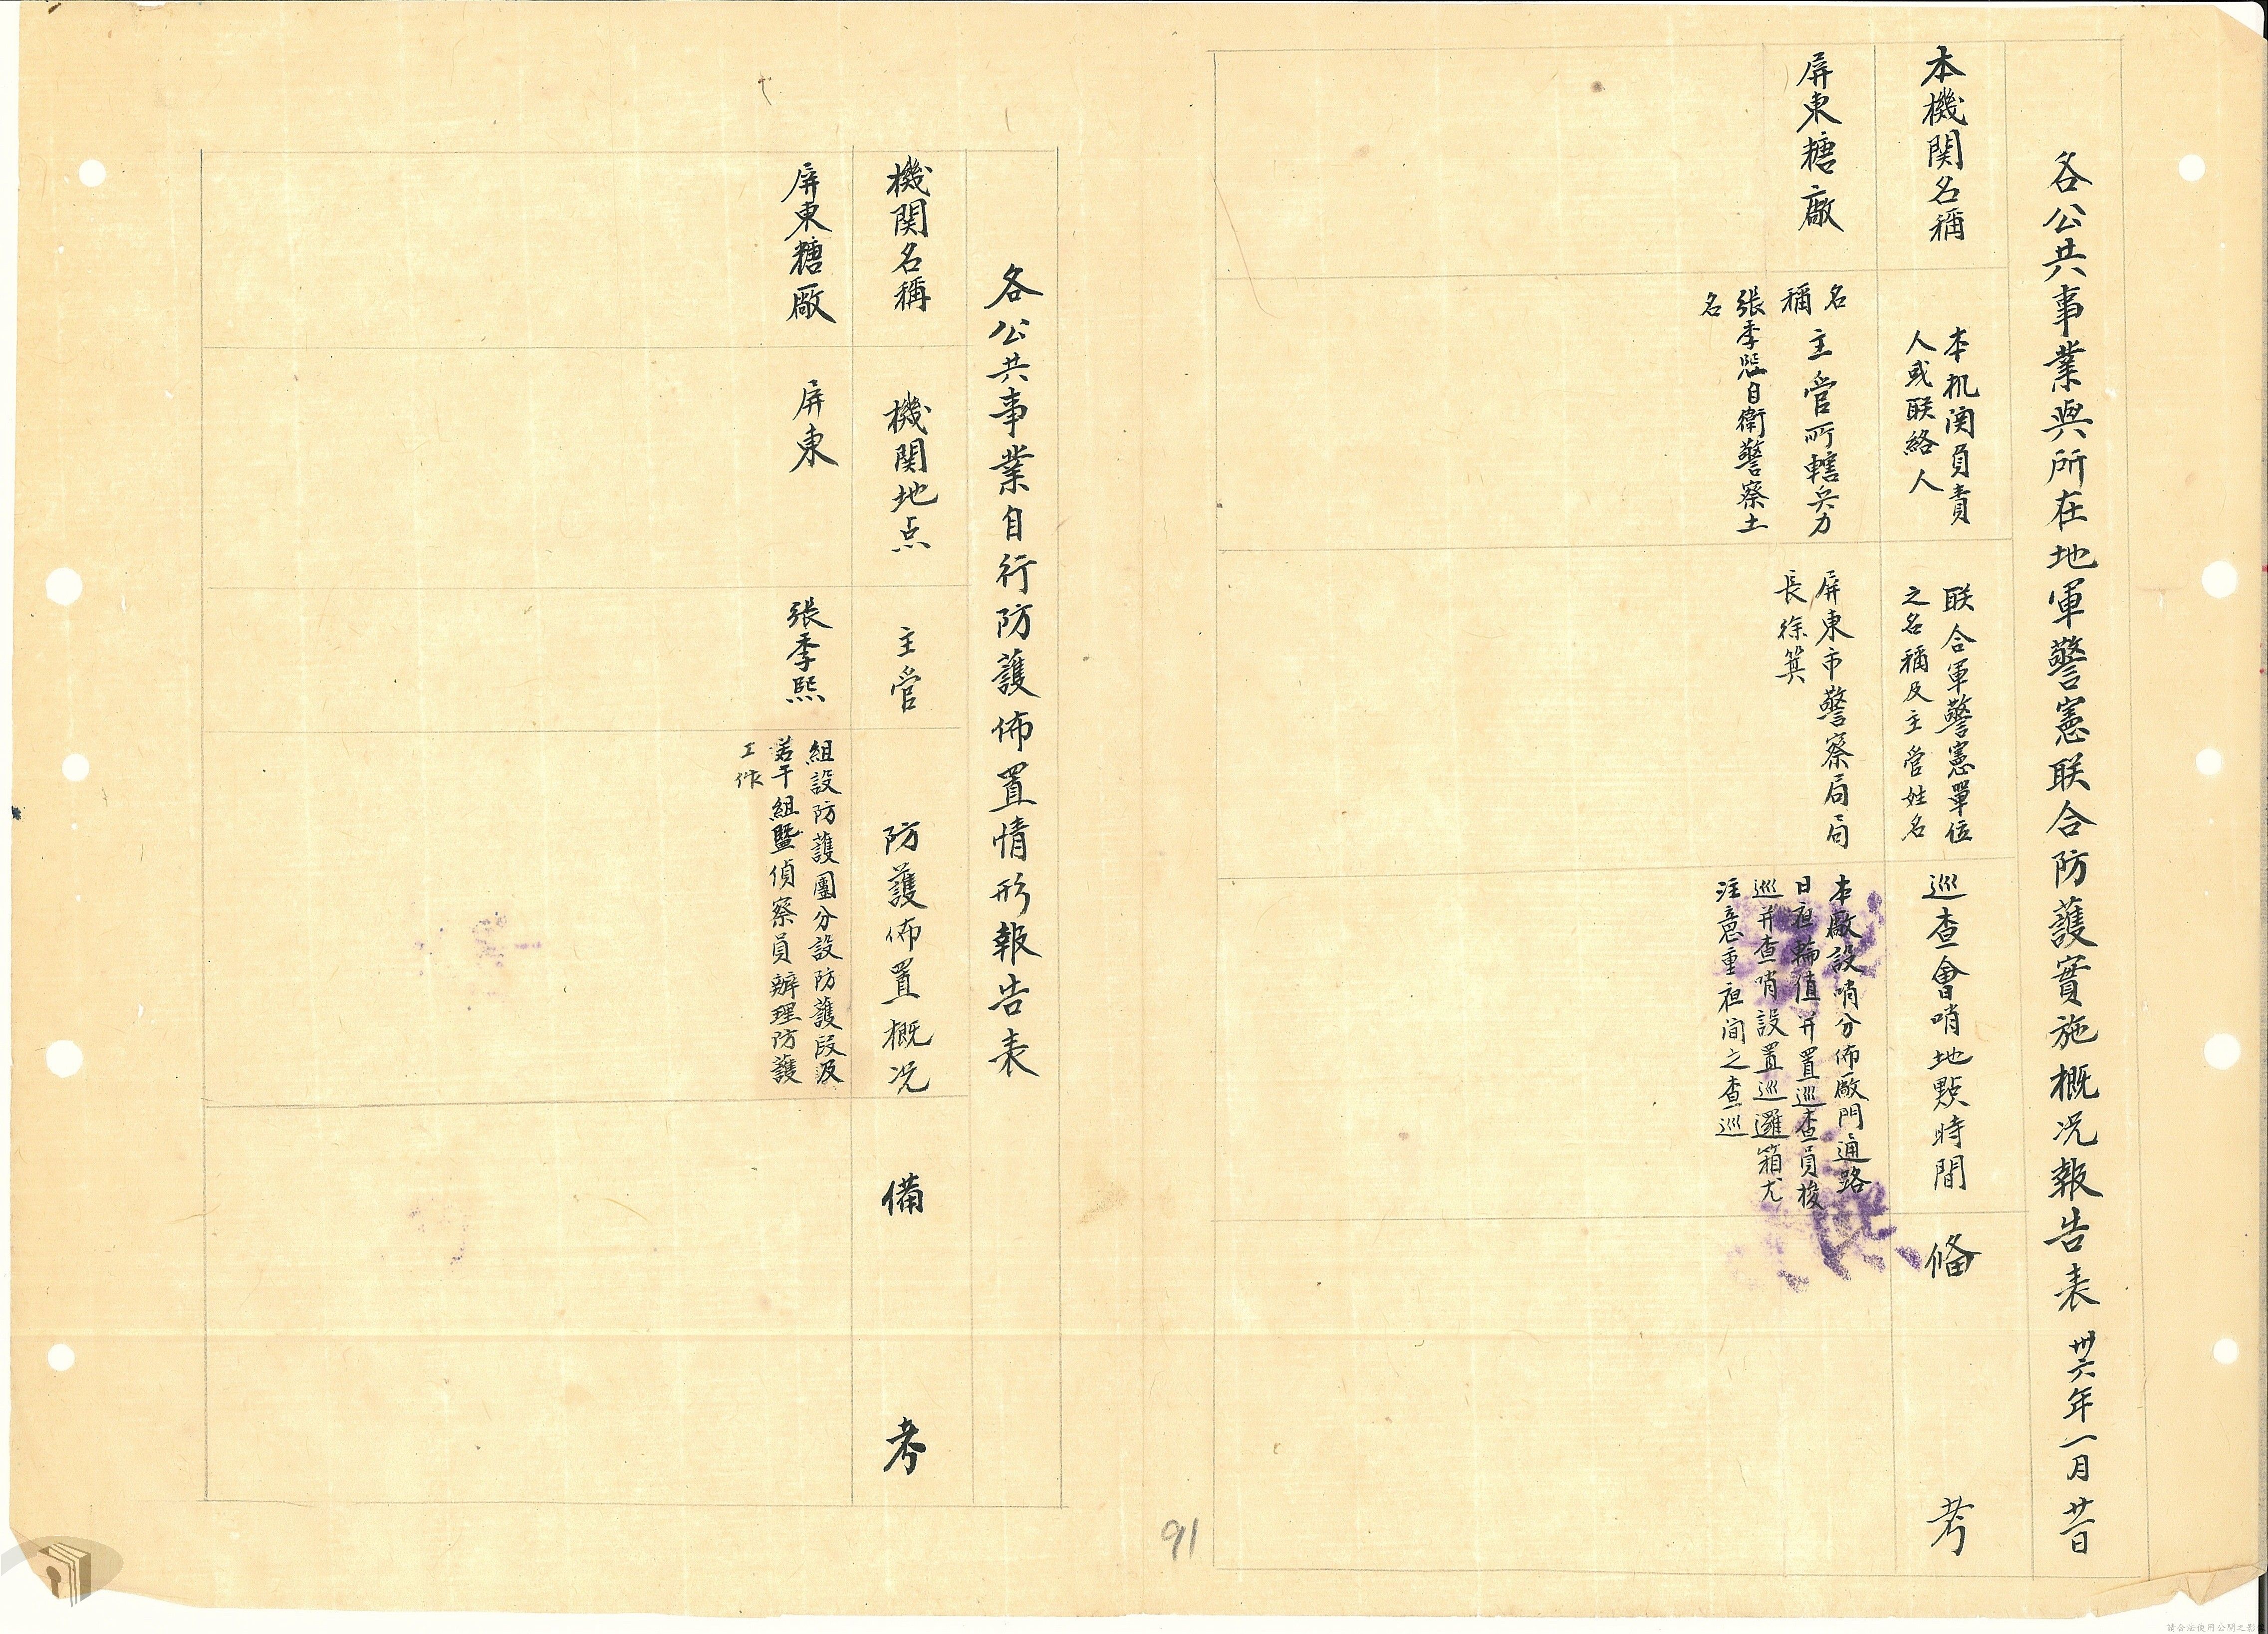 各公共事業與所在地軍警憲联合防護實施概况報告表 卅六年一月廿日
本機関名稱
本机関負責
人或联絡人
联合軍警憲單位
之名稱及主管姓名
巡查會哨地點時間
偹考
屏東糖廠
名
稱
主管所轄兵力
張季熙自衛警察土
名
屏東市警察局局
長徐箕
本廠設哨分佈廠門通路
日夜輪值并置巡查員梭
巡并查哨設置巡邏箱尤
注意重夜间之查巡
各公共事業自行防護佈置情形報告表
機関名稱
機関地点
主管
防護佈置概况
備考
屏東糖廠
屏東
張季熙
組設防護團分設防護段及
若干組暨偵察員辦理防護
工作
91
請合法使用公開之影